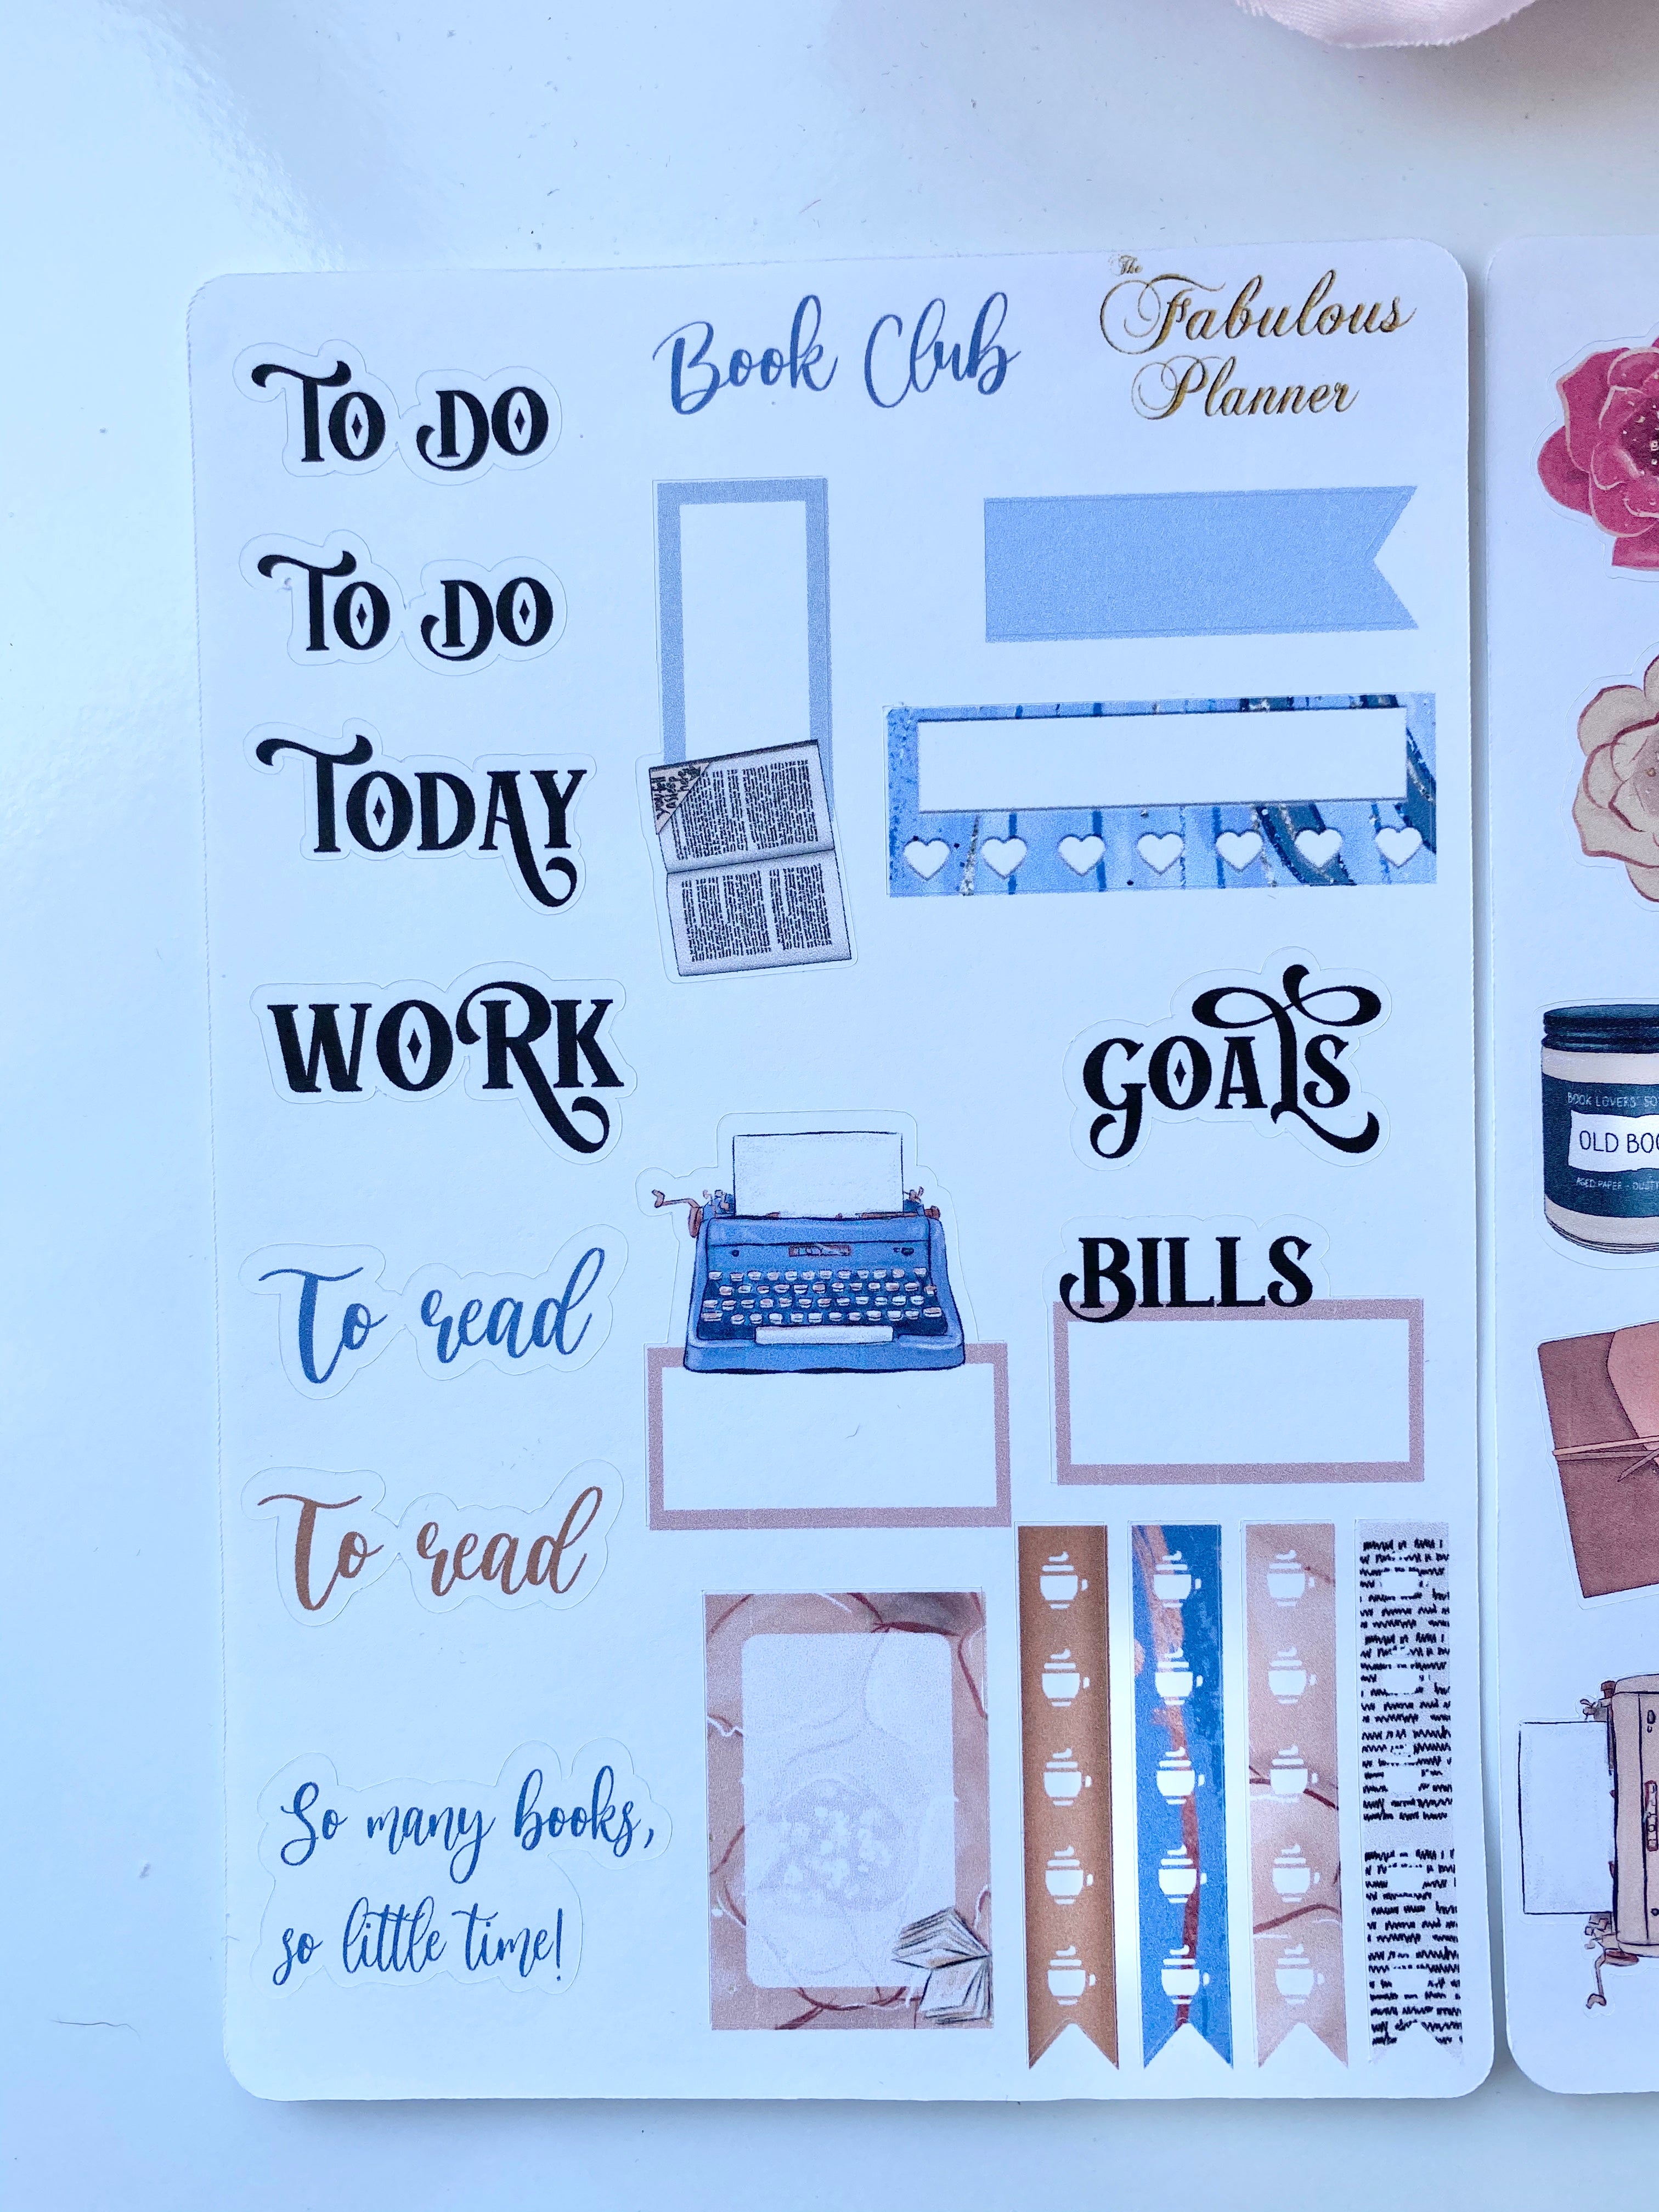 Book Club
The
Fabulous
Planner
TO DO
TO DO
TODAY
WORK
GOALS
To read
BILLS
To read
So many books,
so little time!
BOOK LOVERS' SO
OLD BOO
AGED PAPER - DUST